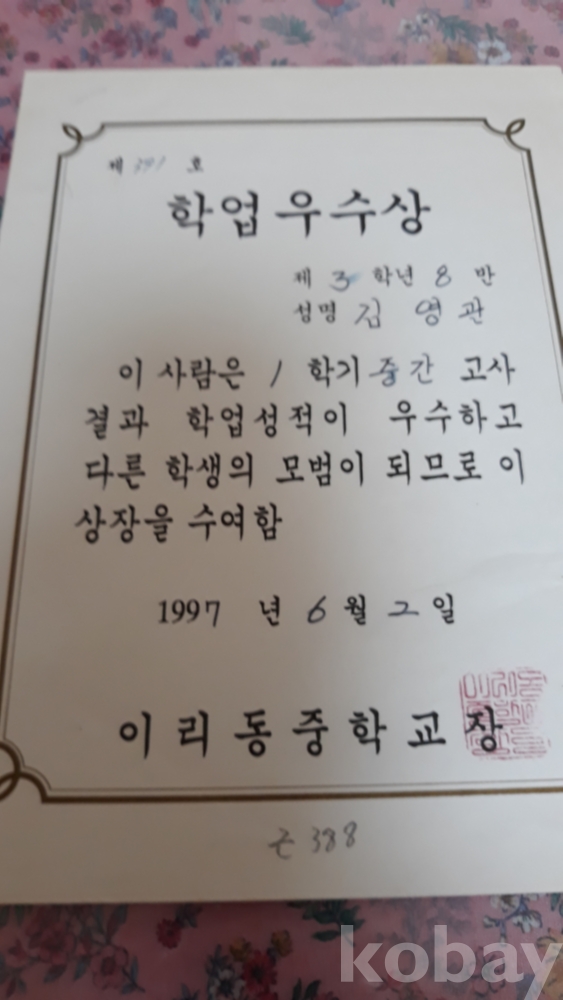 제 391 호
학업우수상
제 3 학년 8 반
성명 김 영 관
이 사람은 1 학기 중간 고사
결과 학업성적이 우수하고
다른 학생의 모범이 되므로 이
상장을 수여함
1997 년 6 월 2 일
이리동중학교장
388
kobay